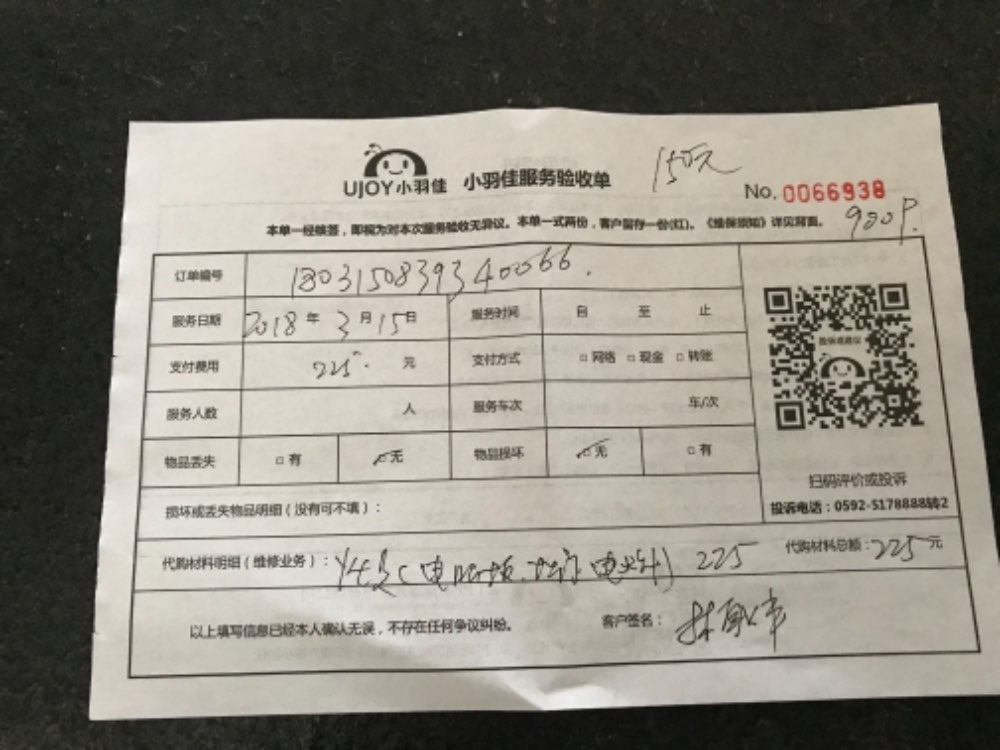 UJOY小羽佳 小羽佳服务验收单 150元
No. 0066938
本单一经填签，即视为对本次服务验收无异议。本单一式两份，客户留存一份(红)。《维保须知》详见背面。
900P.
订单编号 1803150839340066.
服务日期 2018年3月15日 服务时间 自 至 止
支付费用 225. 元 支付方式 □网络 □现金 □转账
服务人数 人 服务车次 车/次
物品丢失 □有 ☑无 物品损坏 ☑无 □有
投诉或建议
扫码评价或投诉
投诉电话：0592-5178888转2
损坏或丢失物品明细（没有可不填）：
代购材料明细（维修业务）： 225 代购材料总额：225元
以上填写信息已经本人确认无误，不存在任何争议纠纷。 客户签名：